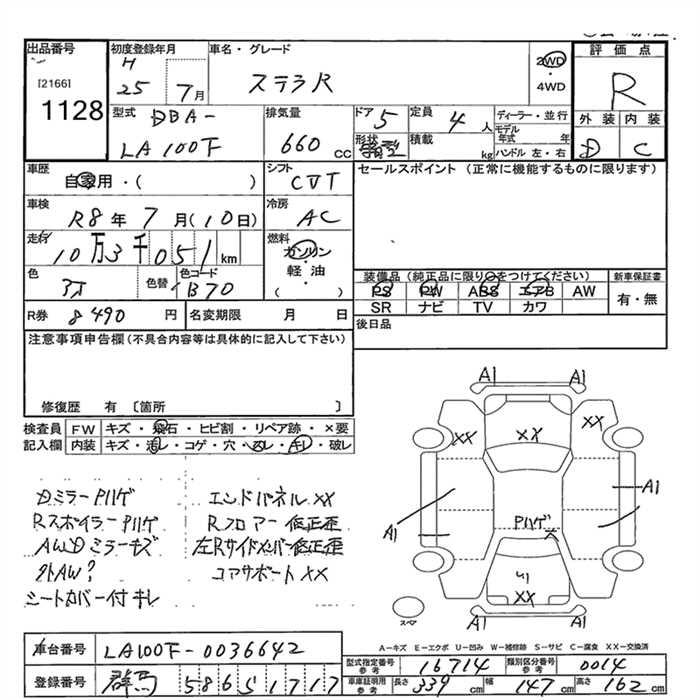 出品番号
[2166]
1128
初度登録年月
H
25 7月
車名・グレード
ステラR
2WD
・
4WD
評価点
R
外装 内装
D C
型式 DBA-
LA100F
排気量
660 cc
ドア 5
形状
定員 4 人
積載 kg
ディーラー・並行
モデル年式 年
ハンドル 左・右
車歴
自家用・( )
シフト
CVT
セールスポイント (正常に機能するものに限ります)
車検
R8年 7月(10日)
冷房
AC
走行
10万3千051 km
燃料
ガソリン
・
軽油
( )
色
色替
色コード
B70
装備品 (純正品に限り○をつけてください)
PS PW ABS エアB AW
SR ナビ TV カワ
新車保証書
有・無
R券 8490 円
名変期限 月 日
後日品
注意事項申告欄(不具合内容等は具体的に記入して下さい)
修復歴 有 〔箇所 〕
検査員
記入欄
FW キズ・飛石・ヒビ割・リペア跡・×要
内装 キズ・汚レ・コゲ・穴・スレ・キレ・破レ
DミラーPハゲ
RスポイラーPハゲ
AWDミラーキズ
外AW?
シートカバー付キレ
エンドパネルXX
Rフロアー修正歪
左Rサイドメンバー修正歪
コアサポートXX
A1
A1
XX
XX
XX
A1
A1
Pハゲ
XX
スペア
A1
A1
A-キズ E-エクボ U-凹み W-補修跡 S-サビ C-腐食 XX-交換済
車台番号
LA100F-0036642
登録番号
群馬 586 す 1717
型式指定番号
参考
16714
類別区分番号
参考
0014
車庫証明用
参考
長さ 339 cm
幅 147 cm
高さ 162 cm